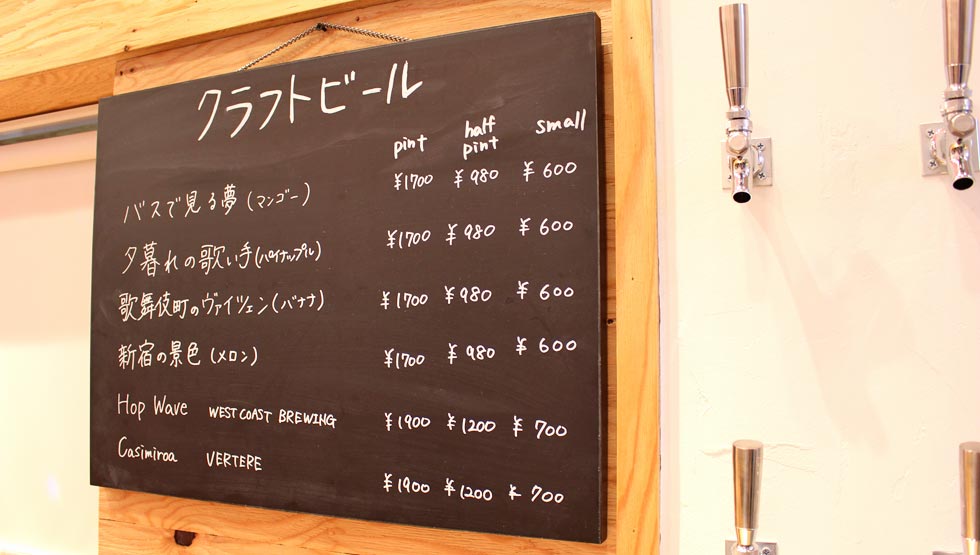 クラフトビール
pint half pint small
バスで見る夢(マンゴー) ¥1700 ¥980 ¥600
夕暮れの歌い手(パイナップル) ¥1700 ¥980 ¥600
歌舞伎町のヴァイツェン(バナナ) ¥1700 ¥980 ¥600
新宿の景色(メロン) ¥1700 ¥980 ¥600
Hop Wave WEST COAST BREWING ¥1900 ¥1200 ¥700
Casimiroa VERTERE ¥1900 ¥1200 ¥700